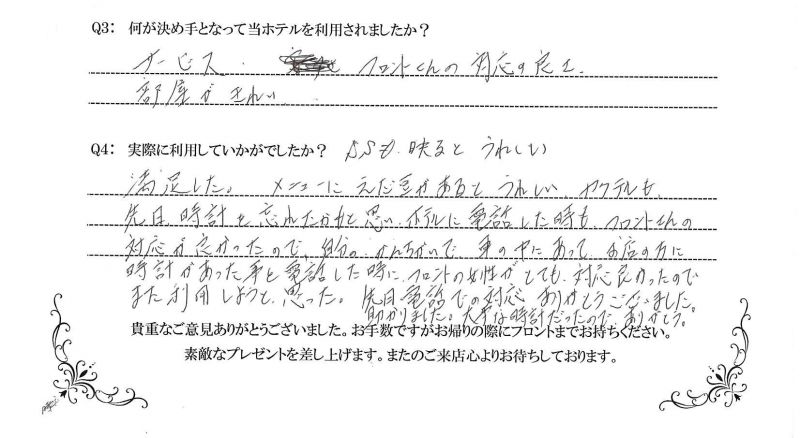 Q3: 何が決め手となって当ホテルを利用されましたか?
サービス. フロントくんの対応の良さ.
部屋がきれい.
Q4: 実際に利用していかがでしたか? BSも.映ると うれしい
満足した。 メニューにえだ豆があるとうれしい、カクテルも、
先日、時計を忘れたかもと思い、ホテルに電話した時も、フロントくんの
対応が良かったので、自分の、かんちがいで車の中にあって、お店の方に
時計があった事を電話した時に、フロントの女性がとても、対応良かったので
また利用しようと、思った。 先日電話での対応 ありがとうございました。
助かりました。大事な時計だったので、ありがとう。
貴重なご意見ありがとうございました。お手数ですがお帰りの際にフロントまでお持ちください。
素敵なプレゼントを差し上げます。またのご来店心よりお待ちしております。